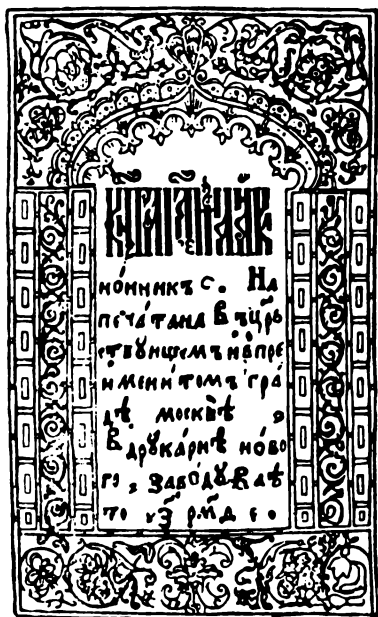 но́нникъ с. На
печа́тана въ цр҃ь
ствꙋющемъ и҆ пре
имени́томъ гра́
дѣ москвѣ ,
В дрꙋка́рнѣ но́во
го , заво́дꙋ в лѣ
то ҂з҃ рм҃д